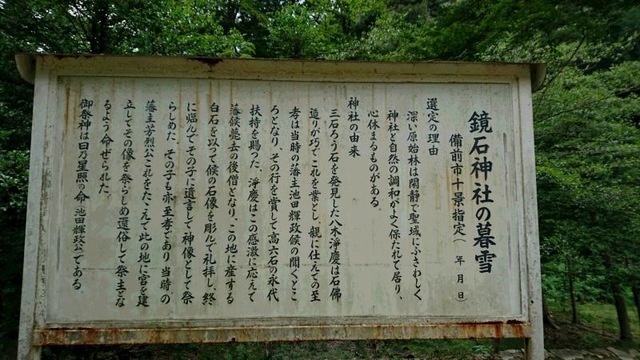 鏡石神社の暮雪
備前市十景指定(　年　月　日)
選定の理由
深い原始林は閑静で聖域にふさわしく
神社と自然の調和がよく保たれて居り、
心休まるものがある。
神社の由来
三石ろう石を発見した八木淨慶は石佛
造りが巧でこれを業とし、親に仕えての至
孝は当時の藩主池田輝政候の聞くとこ
ろとなり、その行を賞して高六石の永代
扶持を賜った。淨慶はこの感激に応えて
藩候薨去の後僧となり、この地に産する
白石を以て候の石像を彫んで礼拝し、終
に臨んでその子に遺言して神像として祭
らしめた。その子も亦至孝であり当時の
藩主芳烈公これをたゝえて此の地に宮を建
立してその像を祭らしめ還俗して祭主とな
るよう命ぜられた。
御祭神は日乃星照の命 池田輝政公である。